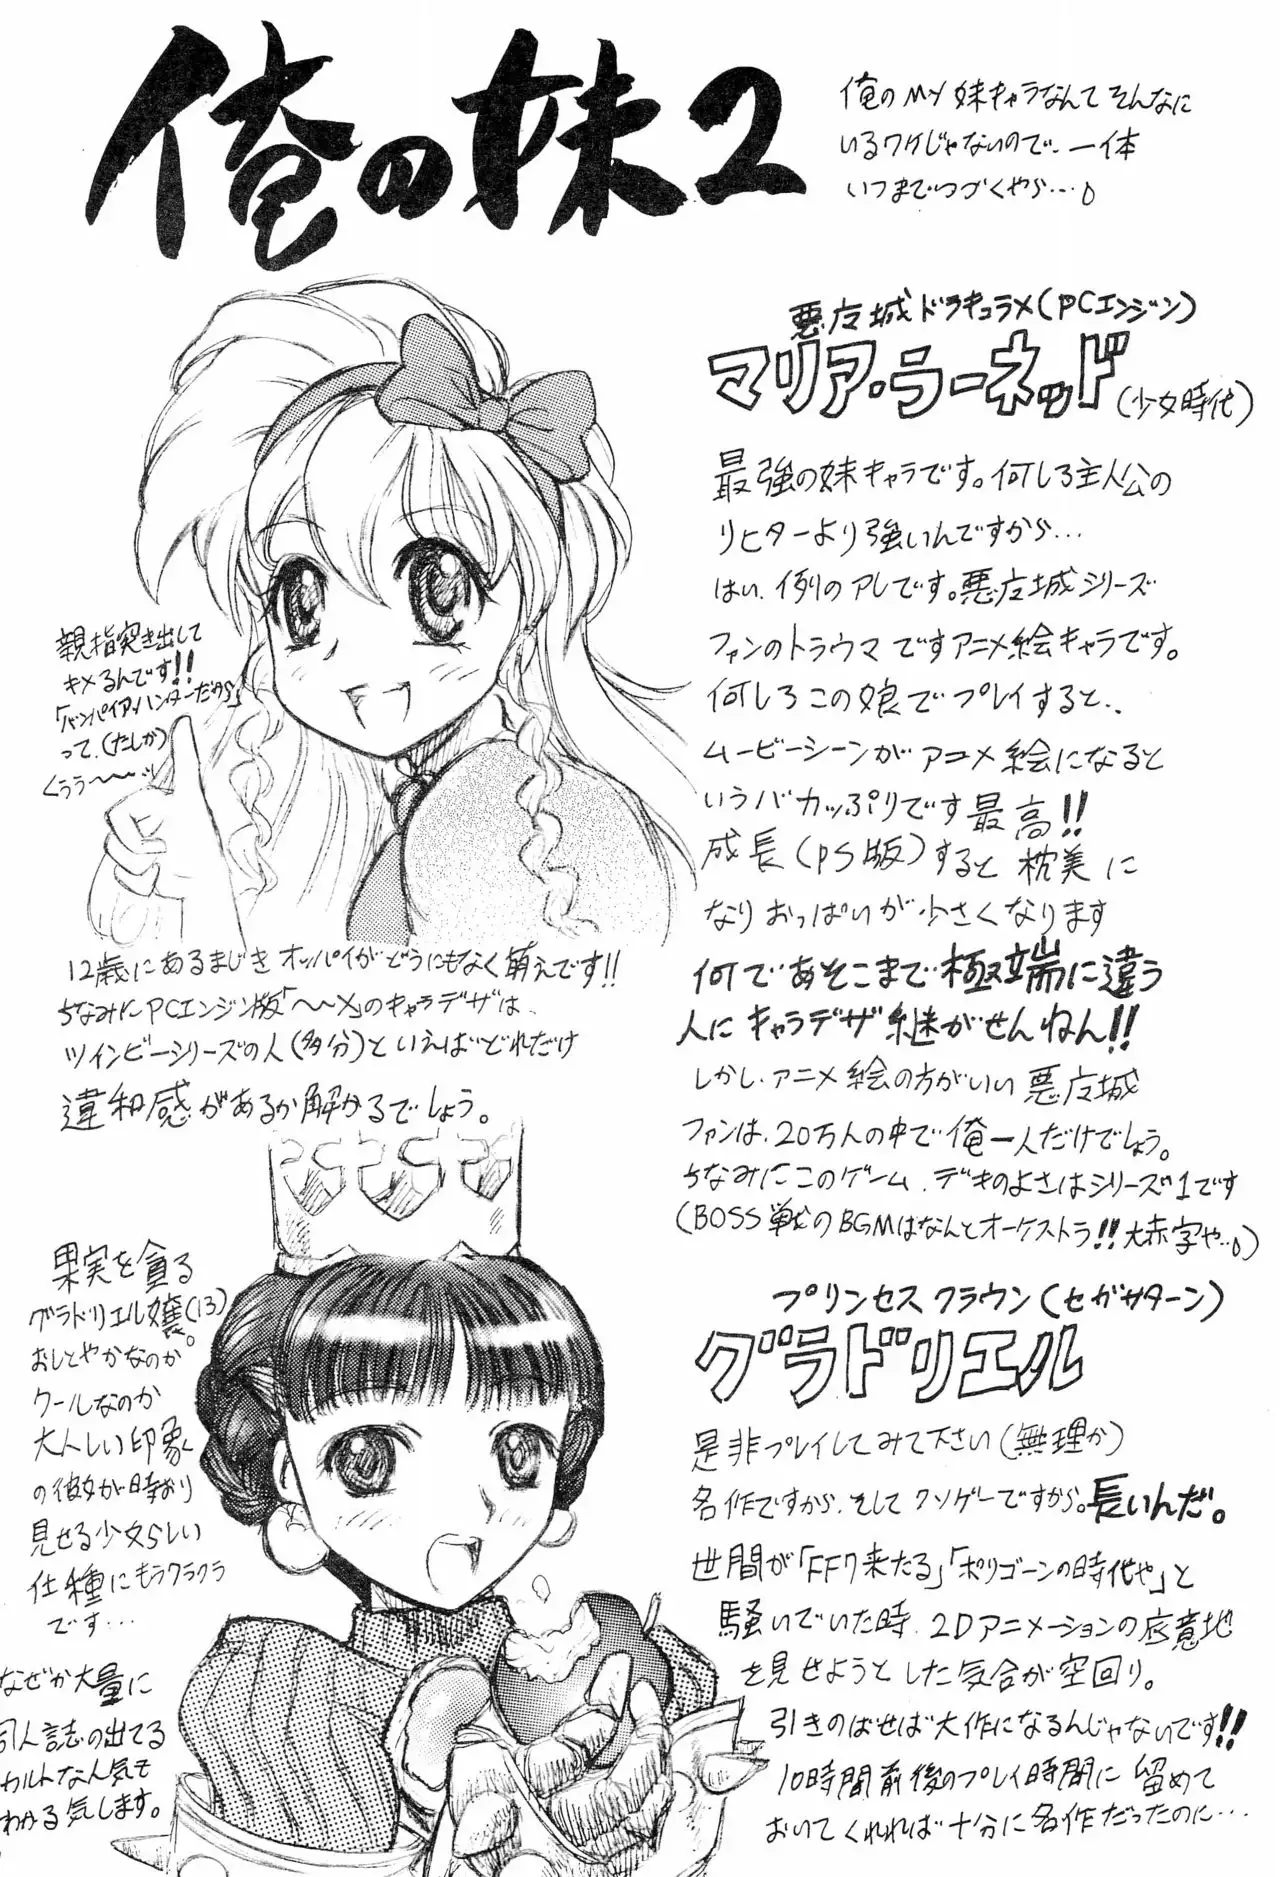 俺の妹2
俺のMY妹キャラなんてそんなに
いるワケじゃないので、一体
いつまでつづくやら…。
悪魔城ドラキュラX(PCエンジン)
マリア・ラーネッド(少女時代)
最強の妹キャラです。何しろ主人公の
リヒターより強いんですから…
はい、例のアレです。悪魔城シリーズ
ファンのトラウマですアニメ絵キャラです。
何しろこの娘でプレイすると、、
ムービーシーンがアニメ絵になると
いうバカっぷりです最高!!
何であそこまで極端に違う
人にキャラデザ継がせんねん!!
しかし、アニメ絵の方がいい悪魔城
ファンは、20万人の中で俺一人だけでしょう。
ちなみにこのゲーム、デキのよさはシリーズ1です
(BOSS戦のBGMはなんとオーケストラ!!大赤字や…。)
親指突き出して
キメるんです!!
「バンパイアハンターだから」
って、(たしか)
くぅぅ〜〜ッ
ちなみにPCエンジン版「〜X」のキャラデザは、
ツインビーシリーズの人(多分)といえばどれだけ
違和感があるか解かるでしょう。
プリンセスクラウン(セガサターン)
グラドリエル
是非プレイしてみて下さい(無理か)
名作ですから、そしてクソゲーですから。長いんだ。
世間が「FF7来たる」「ポリゴーンの時代や」と
騒いでいた時、2Dアニメーションの底意地
を見せようとした気合が空回り。
引きのばせば大作になるんじゃないです!!
10時間前後のプレイ時間に留めて
おいてくれれば十分に名作だったのに…
果実を貪る
グラドリエル嬢(13)。
おしとやかなのか
クールなのか
大人しい印象
の彼女が時おり
見せる少女らしい
仕種にもうクラクラ
です…
なぜか大量に
同人誌の出てる
カルトな人気も
わかる気します。